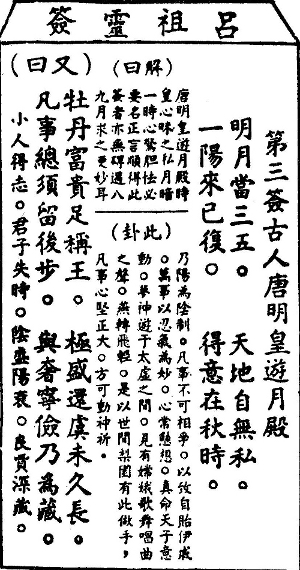 呂祖靈簽
第三簽古人唐明皇遊月殿
明月當三五。天地自無私。
一陽來已復。得意在秋時。
(解曰)
唐明皇遊月殿時
皇心昧之私月暗
一時心驚胆怯必
要名正言順得此
簽者亦無碍遇八
九月求之更妙耳
(此卦)
乃陽為陰制。凡事不可相爭。以攸自貽伊戚
。萬事以忍氣為妙。心常懸想。真命天子意
動。夢神遊于太虛之間。見有嫦娥歌舞唱曲
之聲。燕轉飛輕。是以世間梨園有此做手，
凡事心堅正大。方可動神祈。
(又曰)
牡丹富貴足稱王。極盛還虞未久長。
凡事總須留後步。與奢寧儉乃為臧。
小人得志。君子失時。陰盛陽衰。良賈深藏。